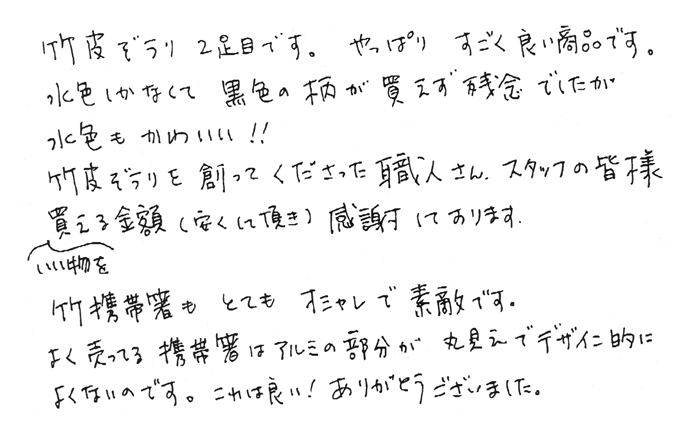 竹皮ぞうり 2足目です。 やっぱり すごく良い商品です。
水色しかなくて 黒色の柄が買えず残念でしたが
水色もかわいい!!
竹皮ぞうりを創ってくださった職人さん、スタッフの皆様
買える金額(安くして頂き)感謝しております。
いい物を
竹携帯箸も とても オシャレで素敵です。
よく売ってる携帯箸はアルミの部分が 丸見えでデザイン的に
よくないのです。これは良い! ありがとうございました。